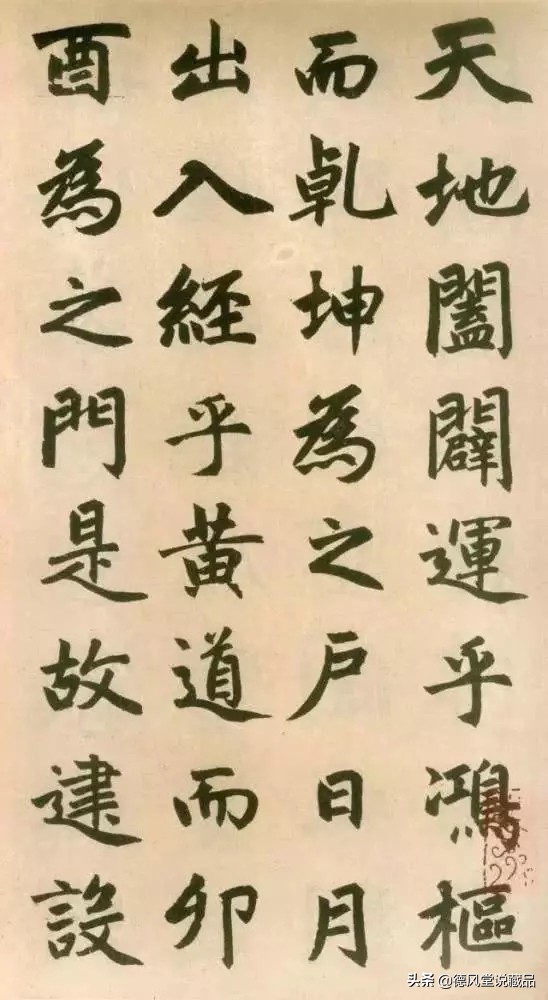 天地闔闢運乎鴻樞
而乹坤為之户日月
出入經乎黄道而卯
酉為之門是故建設
头条 @德风堂说藏品